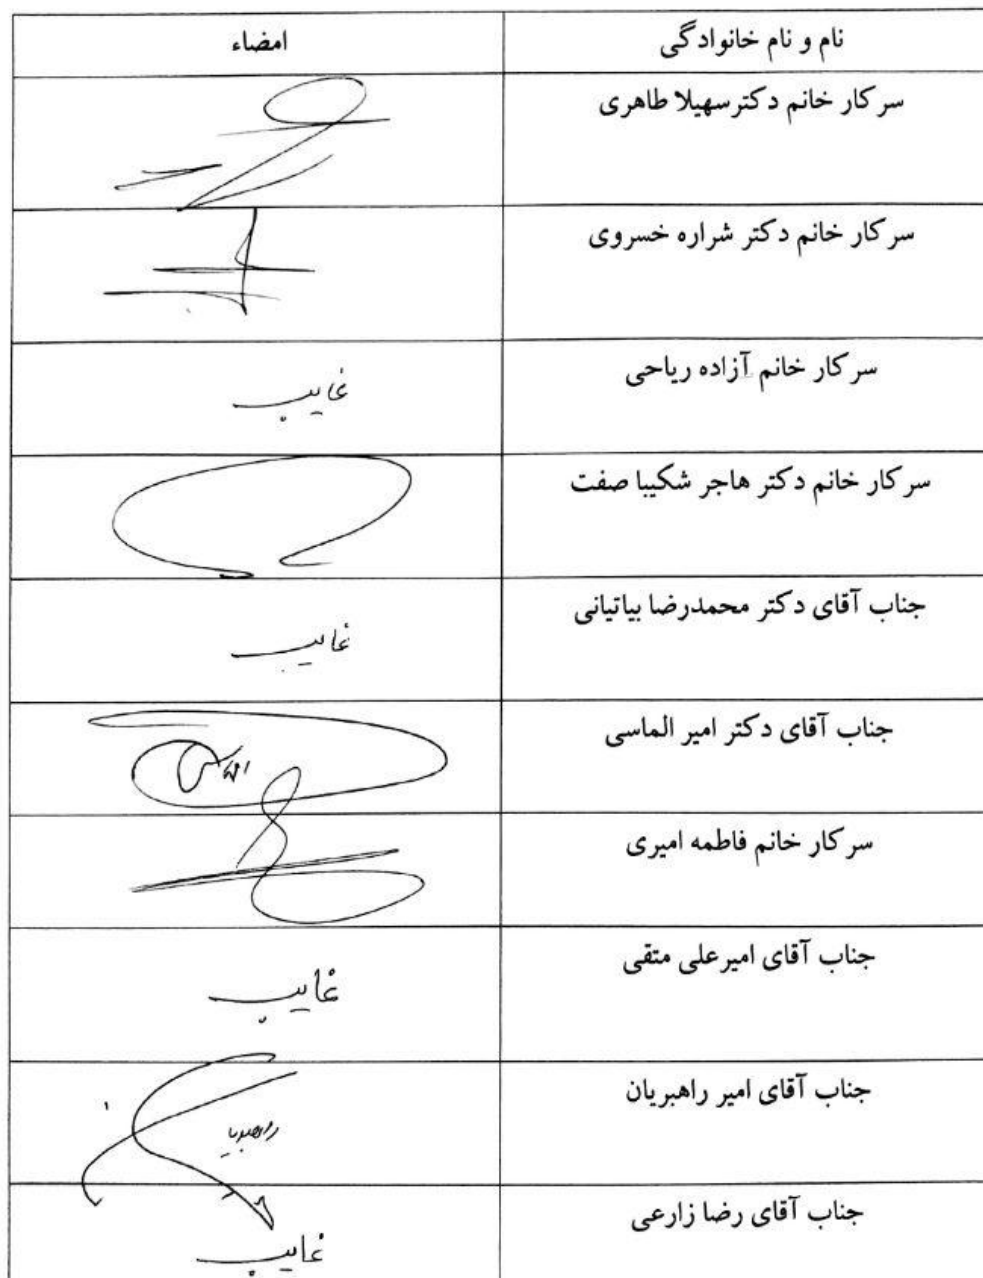 نام و نام خانوادگی
امضاء
سرکار خانم دکترسهیلا طاهری
سرکار خانم دکتر شراره خسروی
سرکار خانم آزاده ریاحی
غایب
سرکار خانم دکتر هاجر شکیبا صفت
جناب آقای دکتر محمدرضا بیاتیانی
غایب
جناب آقای دکتر امیر الماسی
سرکار خانم فاطمه امیری
جناب آقای امیرعلی متقی
غایب
جناب آقای امیر راهبریان
جناب آقای رضا زارعی
غایب